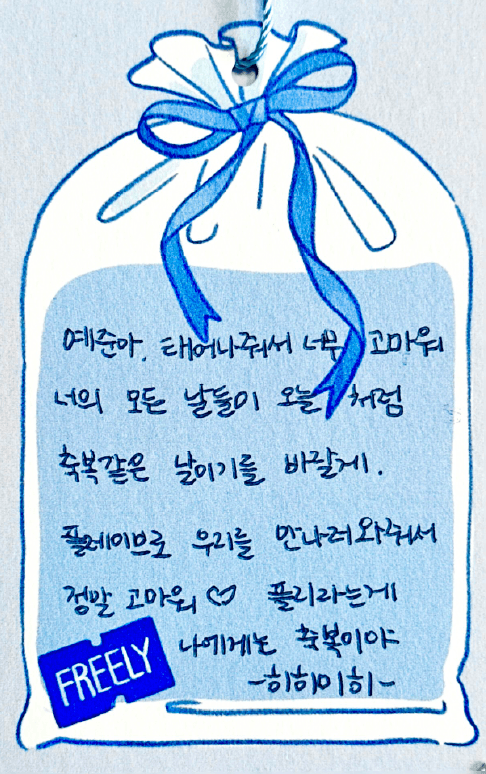 예준아, 태어나줘서 너무 고마워
너의 모든 날들이 오늘처럼
축복같은 날이기를 바랄게.
플레이브로 우리를 만나러와줘서
정말 고마워 ♡ 플리라는게
나에게는 축복이야
FREELY
-히히미히-